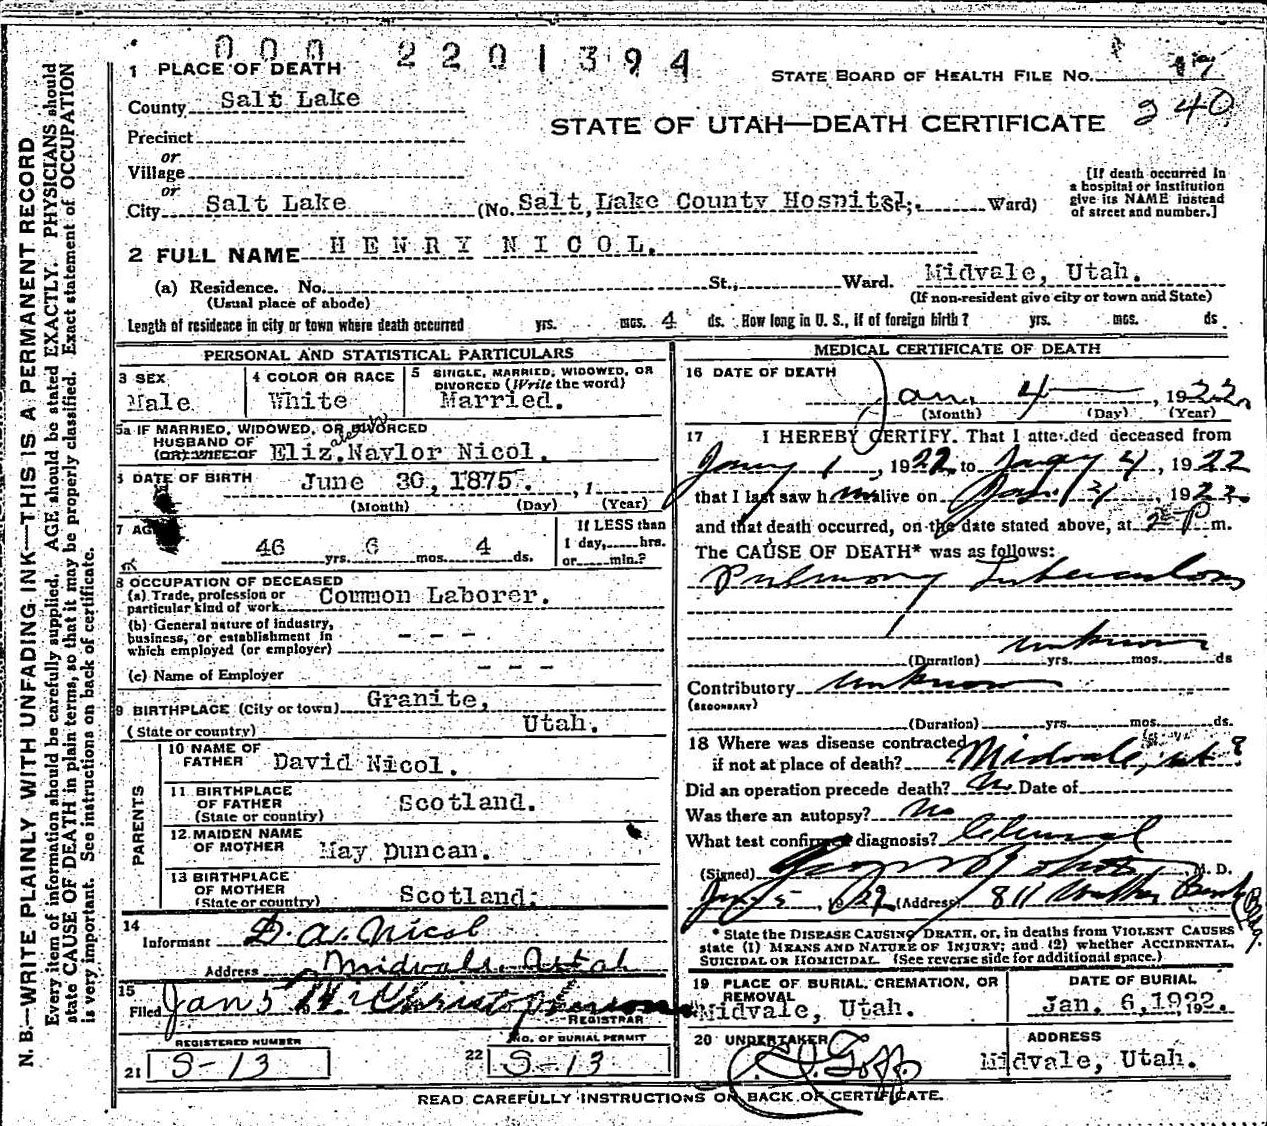 000 2201394
1 PLACE OF DEATH
STATE BOARD OF HEALTH FILE NO. 17
240
County Salt Lake
STATE OF UTAH—DEATH CERTIFICATE
Precinct
or
Village
or
City Salt Lake (No. Salt Lake County Hospital; Ward)
[If death occurred in
a hospital or institution
give its NAME instead
of street and number.]
2 FULL NAME HENRY NICOL.
(a) Residence. No. St., Ward. Midvale, Utah.
(Usual place of abode) (If non-resident give city or town and State)
Length of residence in city or town where death occurred yrs. mos. 4 ds. How long in U. S., if of foreign birth? yrs. mos. ds
PERSONAL AND STATISTICAL PARTICULARS
3 SEX
Male
4 COLOR OR RACE
White
5 SINGLE, MARRIED, WIDOWED, OR
DIVORCED (Write the word)
Married.
5a IF MARRIED, WIDOWED, OR DIVORCED
HUSBAND OF
(OR) WIFE OF Eliz. Naylor Nicol.
6 DATE OF BIRTH June 30, 1875. , 1
(Month) (Day) (Year)
7 AGE
46 yrs. 6 mos. 4 ds.
If LESS than
1 day, hrs.
or min.?
8 OCCUPATION OF DECEASED
(a) Trade, profession or
particular kind of work Common Laborer.
(b) General nature of industry,
business, or establishment in
which employed (or employer) - - -
(c) Name of Employer - - -
9 BIRTHPLACE (City or town) Granite,
(State or country) Utah.
PARENTS
10 NAME OF
FATHER David Nicol.
11 BIRTHPLACE
OF FATHER Scotland.
(State or country)
12 MAIDEN NAME
OF MOTHER May Duncan.
13 BIRTHPLACE
OF MOTHER
(State or country) Scotland;
14
Informant D. A. Nicol
Address Midvale Utah
15
Filed Jan 5
REGISTRAR
REGISTERED NUMBER
21 S-13
NO. OF BURIAL PERMIT
22 S-13
MEDICAL CERTIFICATE OF DEATH
16 DATE OF DEATH
Jan. 4 , 1922
(Month) (Day) (Year)
17 I HEREBY CERTIFY. That I attended deceased from
Jany 1 , 1922 to Jany 4 , 1922
that I last saw him alive on , 1922
and that death occurred, on the date stated above, at 2 P m.
The CAUSE OF DEATH* was as follows:
Pulmonary Tuberculosis
unknown
(Duration) yrs. mos. ds
Contributory unknown
(SECONDARY)
(Duration) yrs. mos. ds.
18 Where was disease contracted
if not at place of death? Midvale, ut ?
Did an operation precede death? No Date of
Was there an autopsy? No
What test confirmed diagnosis? Clinical
(Signed) , M. D.
(Address) 811 Walker Bank Bldg.
* State the DISEASE CAUSING DEATH, or, in deaths from VIOLENT CAUSES
state (1) MEANS AND NATURE OF INJURY; and (2) whether ACCIDENTAL,
SUICIDAL OR HOMICIDAL. (See reverse side for additional space.)
19 PLACE OF BURIAL, CREMATION, OR
REMOVAL
Midvale, Utah.
DATE OF BURIAL
Jan. 6,1922, 192 .
20 UNDERTAKER
Goff
ADDRESS
Midvale, Utah.
READ CAREFULLY INSTRUCTIONS ON BACK OF CERTIFICATE.
N. B.—WRITE PLAINLY WITH UNFADING INK—THIS IS A PERMANENT RECORD
Every item of information should be carefully supplied. AGE should be stated EXACTLY. PHYSICIANS should
state CAUSE OF DEATH in plain terms, so that it may be properly classified. Exact statement of OCCUPATION
is very important. See instructions on back of certificate.